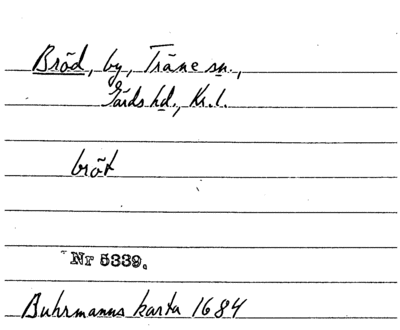 Bröd, by, Träne sn.,
Gärds hd., Kr. l.
bröt
Nr 5339.
Buhrmanns karta 1684